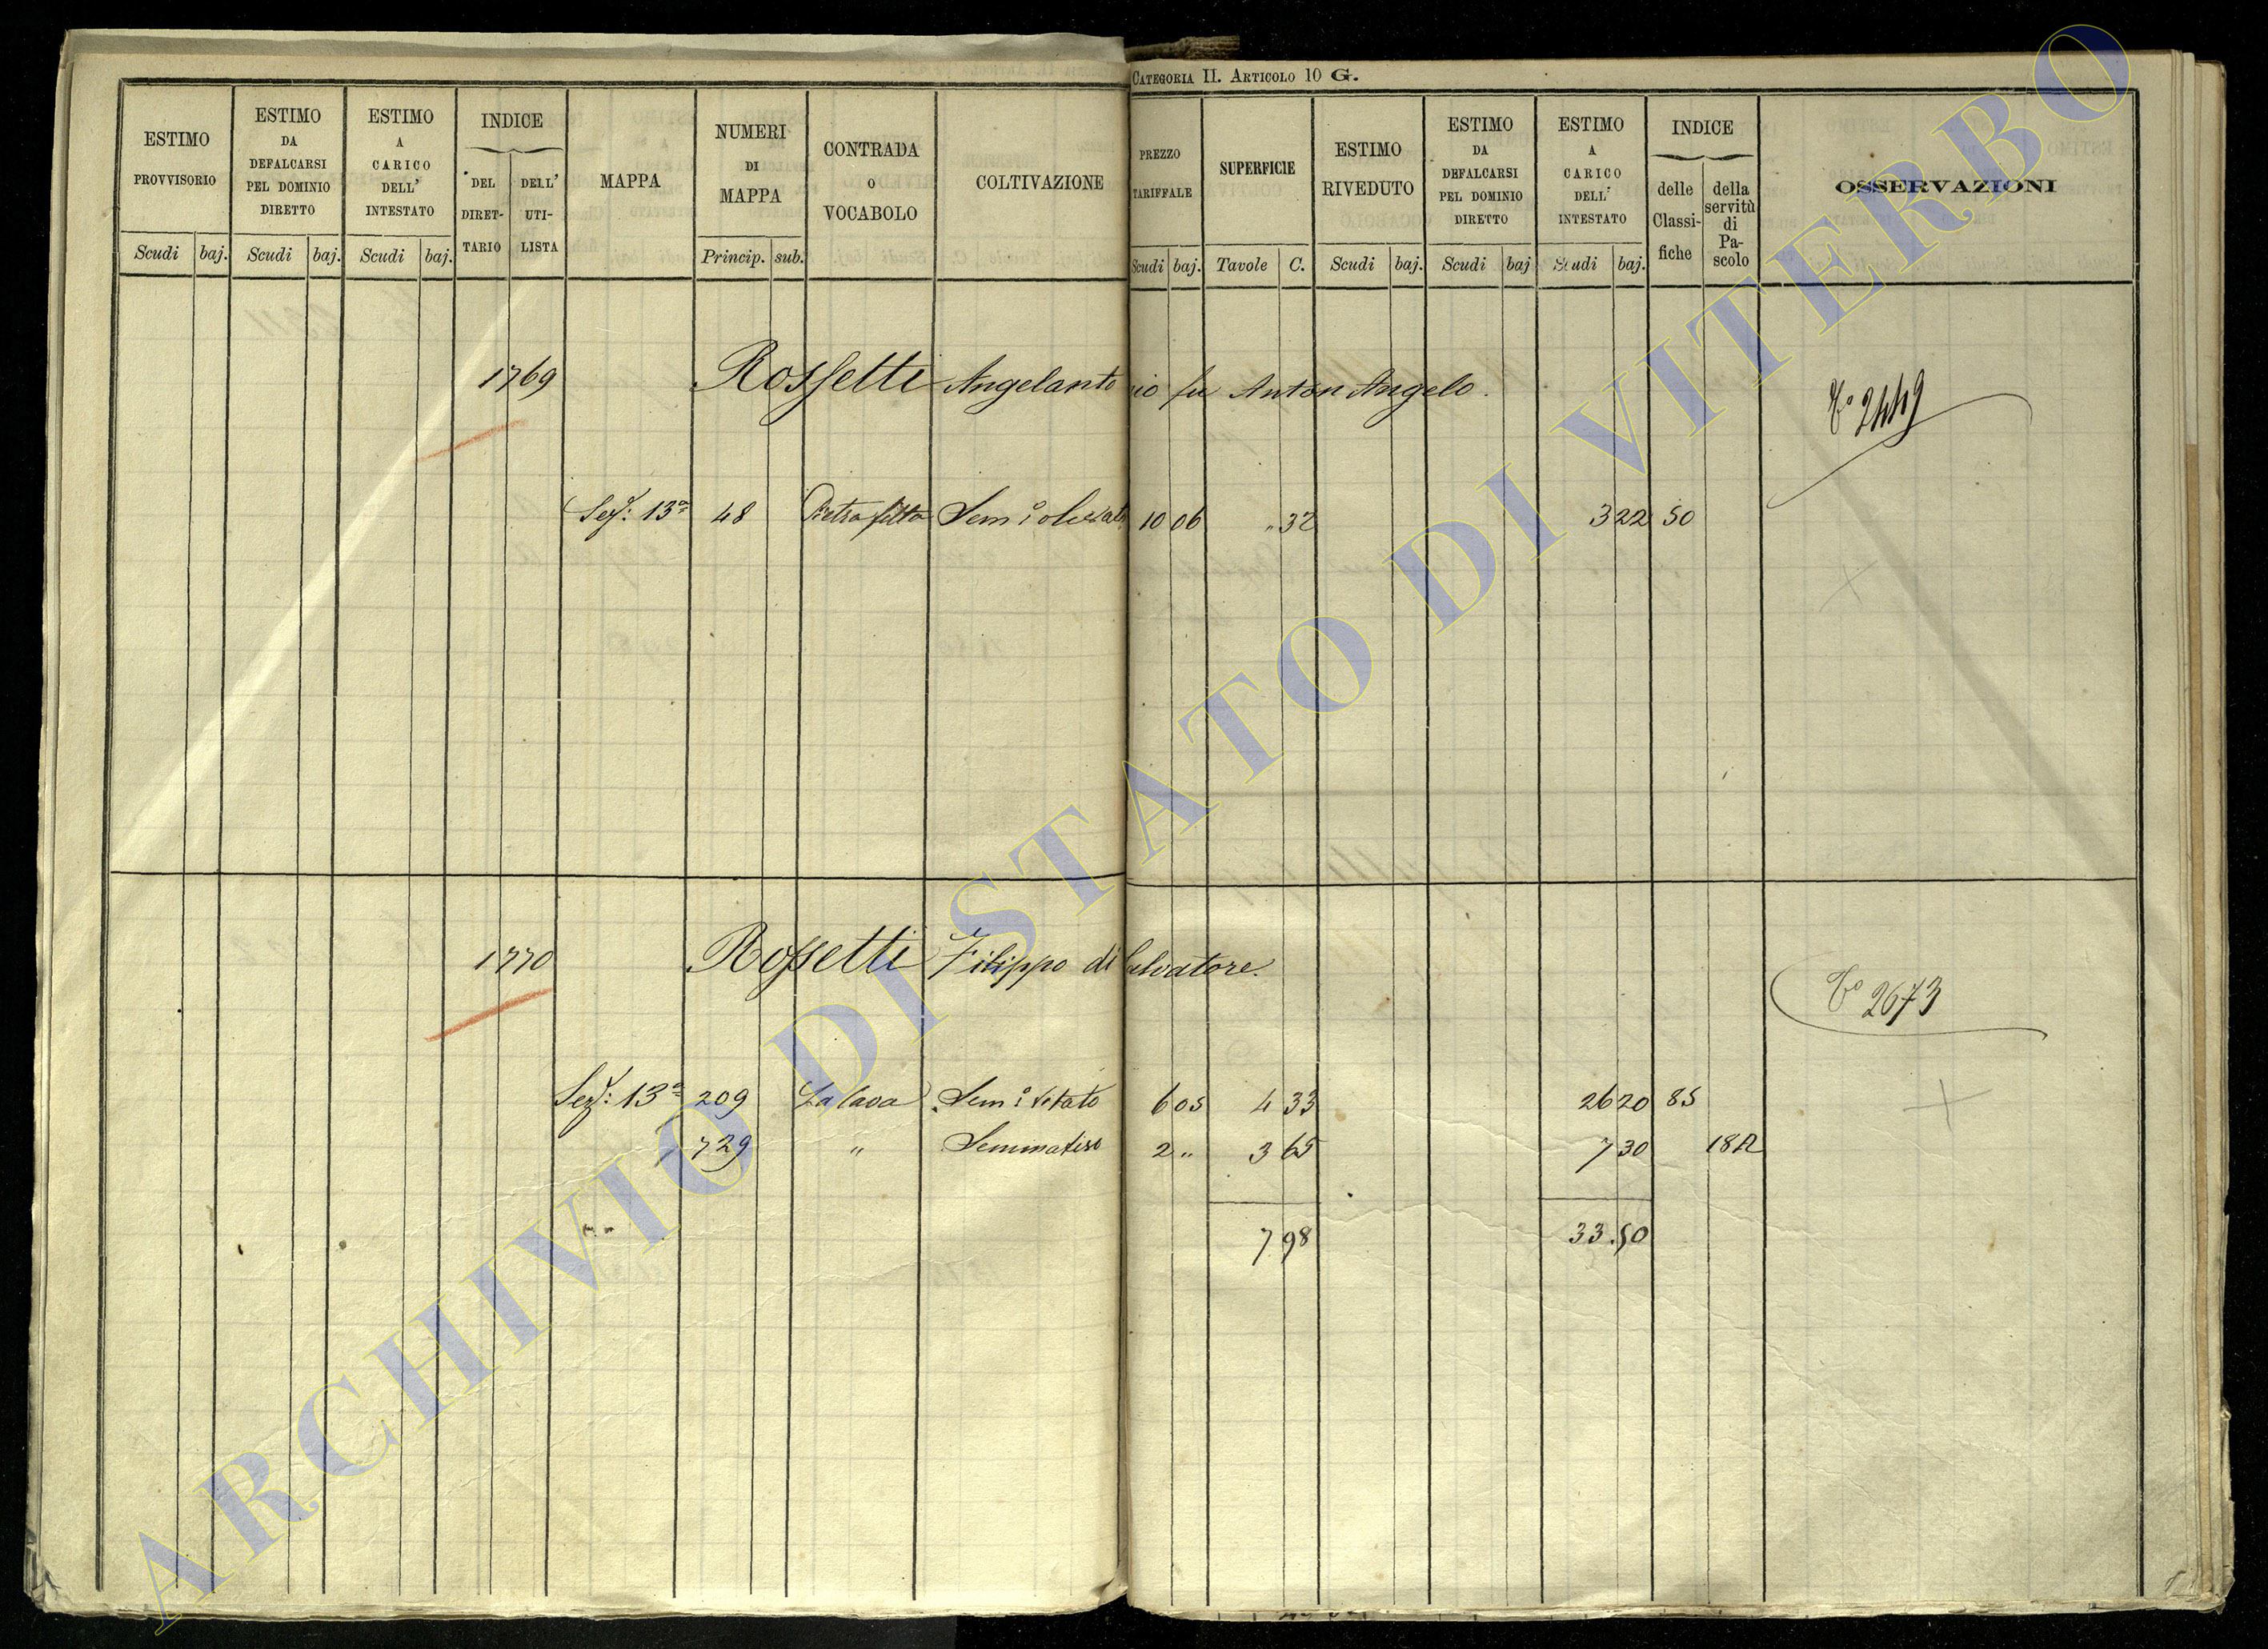 CATEGORIA II. ARTICOLO 10 G.
ESTIMO PROVVISORIO Scudi baj.
ESTIMO DA DEFALCARSI PEL DOMINIO DIRETTO Scudi baj.
ESTIMO A CARICO DELL' INTESTATO Scudi baj.
INDICE DEL DIRET-TARIO DELL' UTI-LISTA
MAPPA
NUMERI DI MAPPA Princip. sub.
CONTRADA O VOCABOLO
COLTIVAZIONE
PREZZO TARIFFALE Scudi baj.
SUPERFICIE Tavole C.
ESTIMO RIVEDUTO Scudi baj.
ESTIMO DA DEFALCARSI PEL DOMINIO DIRETTO Scudi baj
ESTIMO A CARICO DELL' INTESTATO Scudi baj.
INDICE delle Classi-fiche della servitù di Pa-scolo
OSSERVAZIONI
1769 Rossetti Angelantonio fu Anton Angelo. 2449
Sez: 13a 48 Pietrafitta Sem: 10 06 " 32 3 22 50
1770 Rossetti Filippo di Salvatore. 2673
Sez: 13a 209 La Cava Sem: Vitato 6 05 4 33 26 20 85
729 " Seminativo 2 " 3 65 7 30 18A
7 98 33.50
ARCHIVIO DI STATO DI VITERBO